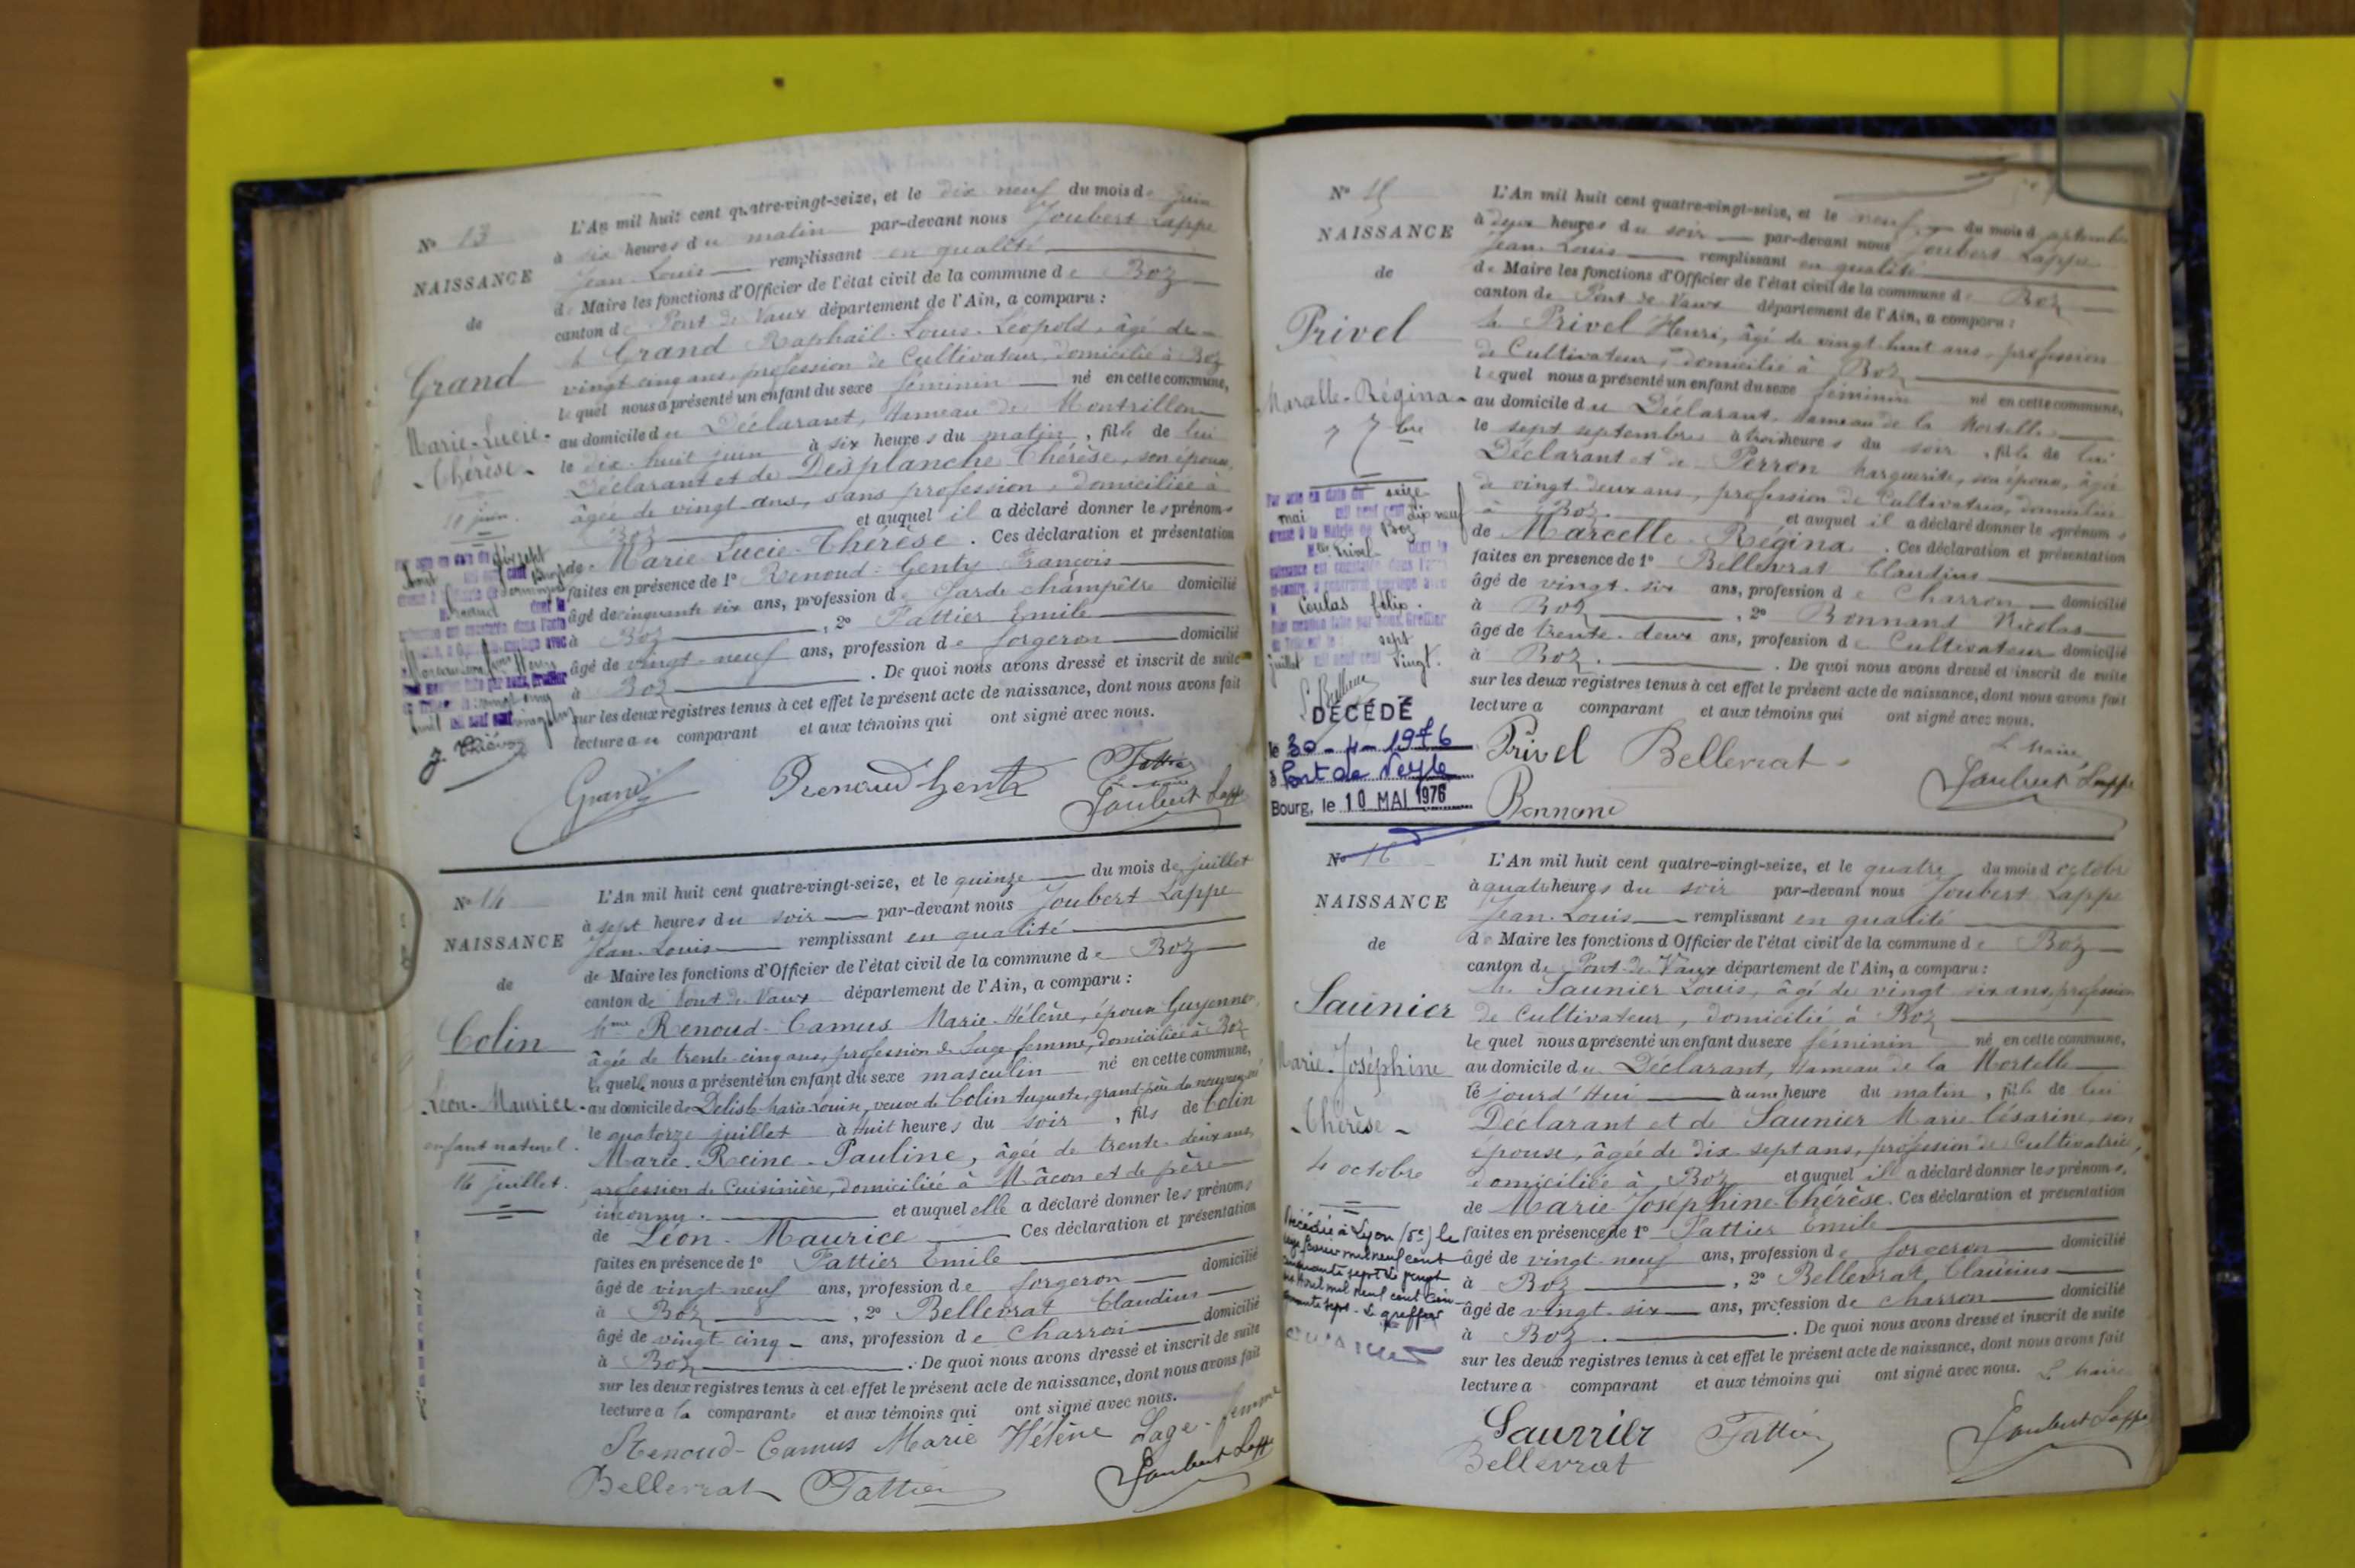 N° 13
NAISSANCE
de
Grand
Marie-Lucie-
Thérèse-
18 juin.
L'An mil huit cent quatre-vingt-seize, et le dix neuf du mois de juin
à six heures du matin par-devant nous Joubert Lappe
Jean-Louis remplissant en qualité
de Maire les fonctions d'Officier de l'état civil de la commune de Boz
canton de Pont de Vaux département de l'Ain, a comparu :
Grand Raphaïl-Louis-Léopold, âgé de
vingt cinq ans, profession de Cultivateur, domicilié à Boz
lequel nous a présenté un enfant du sexe féminin né en cette commune,
au domicile du Déclarant, hameau de Montrillon
le dix huit juin à six heures du matin, fille de lui
Déclarant et de Desplanche Thérèse, son épouse,
âgée de vingt ans, sans profession, domiciliée à
Boz et auquel il a déclaré donner les prénoms
de Marie Lucie-Thérèse. Ces déclaration et présentation
faites en présence de 1° Renoud-Genty François
âgé de cinquante six ans, profession de Garde champêtre domicilié
à Boz, 2° Fattier Emile
âgé de vingt-neuf ans, profession de forgeron domicilié
à Boz. De quoi nous avons dressé et inscrit de suite
sur les deux registres tenus à cet effet le présent acte de naissance, dont nous avons fait
lecture au comparant et aux témoins qui ont signé avec nous.
Grand Renoud Genty Fattier
Joubert Lappe
N° 14
NAISSANCE
de
Colin
Léon-Maurice-
enfant naturel.
14 juillet.
L'An mil huit cent quatre-vingt-seize, et le quinze du mois de juillet
à sept heures du soir par-devant nous Joubert Lappe
Jean-Louis remplissant en qualité
de Maire les fonctions d'Officier de l'état civil de la commune de Boz
canton de Pont de Vaux département de l'Ain, a comparu :
Renoud-Camus Marie-Hélène, épouse Guyenne
âgée de trente cinq ans, profession de Sage femme, domiciliée à Boz
laquelle nous a présenté un enfant du sexe masculin né en cette commune,
au domicile de Delisle Marie-Louise, veuve de Colin Auguste, grand-mère du nouveau né
le quatorze juillet à huit heures du soir, fils de Colin
Marie-Reine-Pauline, âgée de trente-deux ans,
profession de Cuisinière, domiciliée à Mâcon et de père
inconnu. et auquel elle a déclaré donner les prénoms
de Léon-Maurice Ces déclaration et présentation
faites en présence de 1° Fattier Emile
âgé de vingt-neuf ans, profession de forgeron domicilié
à Boz, 2° Bellevrat Claudius
âgé de vingt-cinq ans, profession de Charron domicilié
à Boz. De quoi nous avons dressé et inscrit de suite
sur les deux registres tenus à cet effet le présent acte de naissance, dont nous avons fait
lecture a la comparante et aux témoins qui ont signé avec nous.
Renoud-Camus Marie Hélène Sage-femme
Bellevrat Fattier Joubert Lappe
N° 15
NAISSANCE
de
Privel
Marcelle-Régina-
7 7bre
seize
mai dix neuf
Boz
Privel
Coulas félix.
sept
juillet vingt.
DÉCÉDÉ
le 30-4-1976
à Pont de Veyle
Bourg, le 10 MAI 1976
L'An mil huit cent quatre-vingt-seize, et le neuf du mois de septembre
à deux heures du soir par-devant nous Joubert Lappe
Jean-Louis remplissant en qualité
de Maire les fonctions d'Officier de l'état civil de la commune de Boz
canton de Pont de Vaux département de l'Ain, a comparu :
Privel Henri, âgé de vingt huit ans, profession
de Cultivateur, domicilié à Boz
lequel nous a présenté un enfant du sexe féminin né en cette commune,
au domicile du Déclarant, hameau de la Mortelle
le sept septembre à trois heures du soir, fille de lui
Déclarant et de Perron Marguerite, son épouse, âgée
de vingt deux ans, profession de Cultivatrice, domiciliée
à Boz. et auquel il a déclaré donner les prénoms
de Marcelle-Régina. Ces déclaration et présentation
faites en présence de 1° Bellevrat Claudius
âgé de vingt-six ans, profession de Charron domicilié
à Boz, 2° Bonnand Nicolas
âgé de trente-deux ans, profession de Cultivateur domicilié
à Boz. De quoi nous avons dressé et inscrit de suite
sur les deux registres tenus à cet effet le présent acte de naissance, dont nous avons fait
lecture a comparant et aux témoins qui ont signé avec nous.
Le Maire
Privel Bellevrat Joubert Lappe
Bonnand
N° 16
NAISSANCE
de
Saunier
Marie-Joséphine
-Thérèse-
4 octobre
Décédée à Lyon (5e) le
mil neuf cent
cinquante sept le vingt
Avril mil neuf cent cin-
quante sept - Le greffier
L'An mil huit cent quatre-vingt-seize, et le quatre du mois d'octobre
à quatre heures du soir par-devant nous Joubert Lappe
Jean-Louis remplissant en qualité
de Maire les fonctions d'Officier de l'état civil de la commune de Boz
canton de Pont de Vaux département de l'Ain, a comparu :
Saunier Louis, âgé de vingt six ans, profession
de Cultivateur, domicilié à Boz
lequel nous a présenté un enfant du sexe féminin né en cette commune,
au domicile du Déclarant, hameau de la Mortelle
le jourd'hui à une heure du matin, fille de lui
Déclarant et de Saunier Marie-Césarine, son
épouse, âgée de dix sept ans, profession de Cultivatrice,
domiciliée à Boz et auquel il a déclaré donner les prénoms
de Marie-Joséphine-Thérèse. Ces déclaration et présentation
faites en présence de 1° Fattier Emile
âgé de vingt-neuf ans, profession de forgeron domicilié
à Boz, 2° Bellevrat Claudius
âgé de vingt-six ans, profession de charron domicilié
à Boz. De quoi nous avons dressé et inscrit de suite
sur les deux registres tenus à cet effet le présent acte de naissance, dont nous avons fait
lecture a comparant et aux témoins qui ont signé avec nous. Le Maire
Saunier Fattier Joubert Lappe
Bellevrat